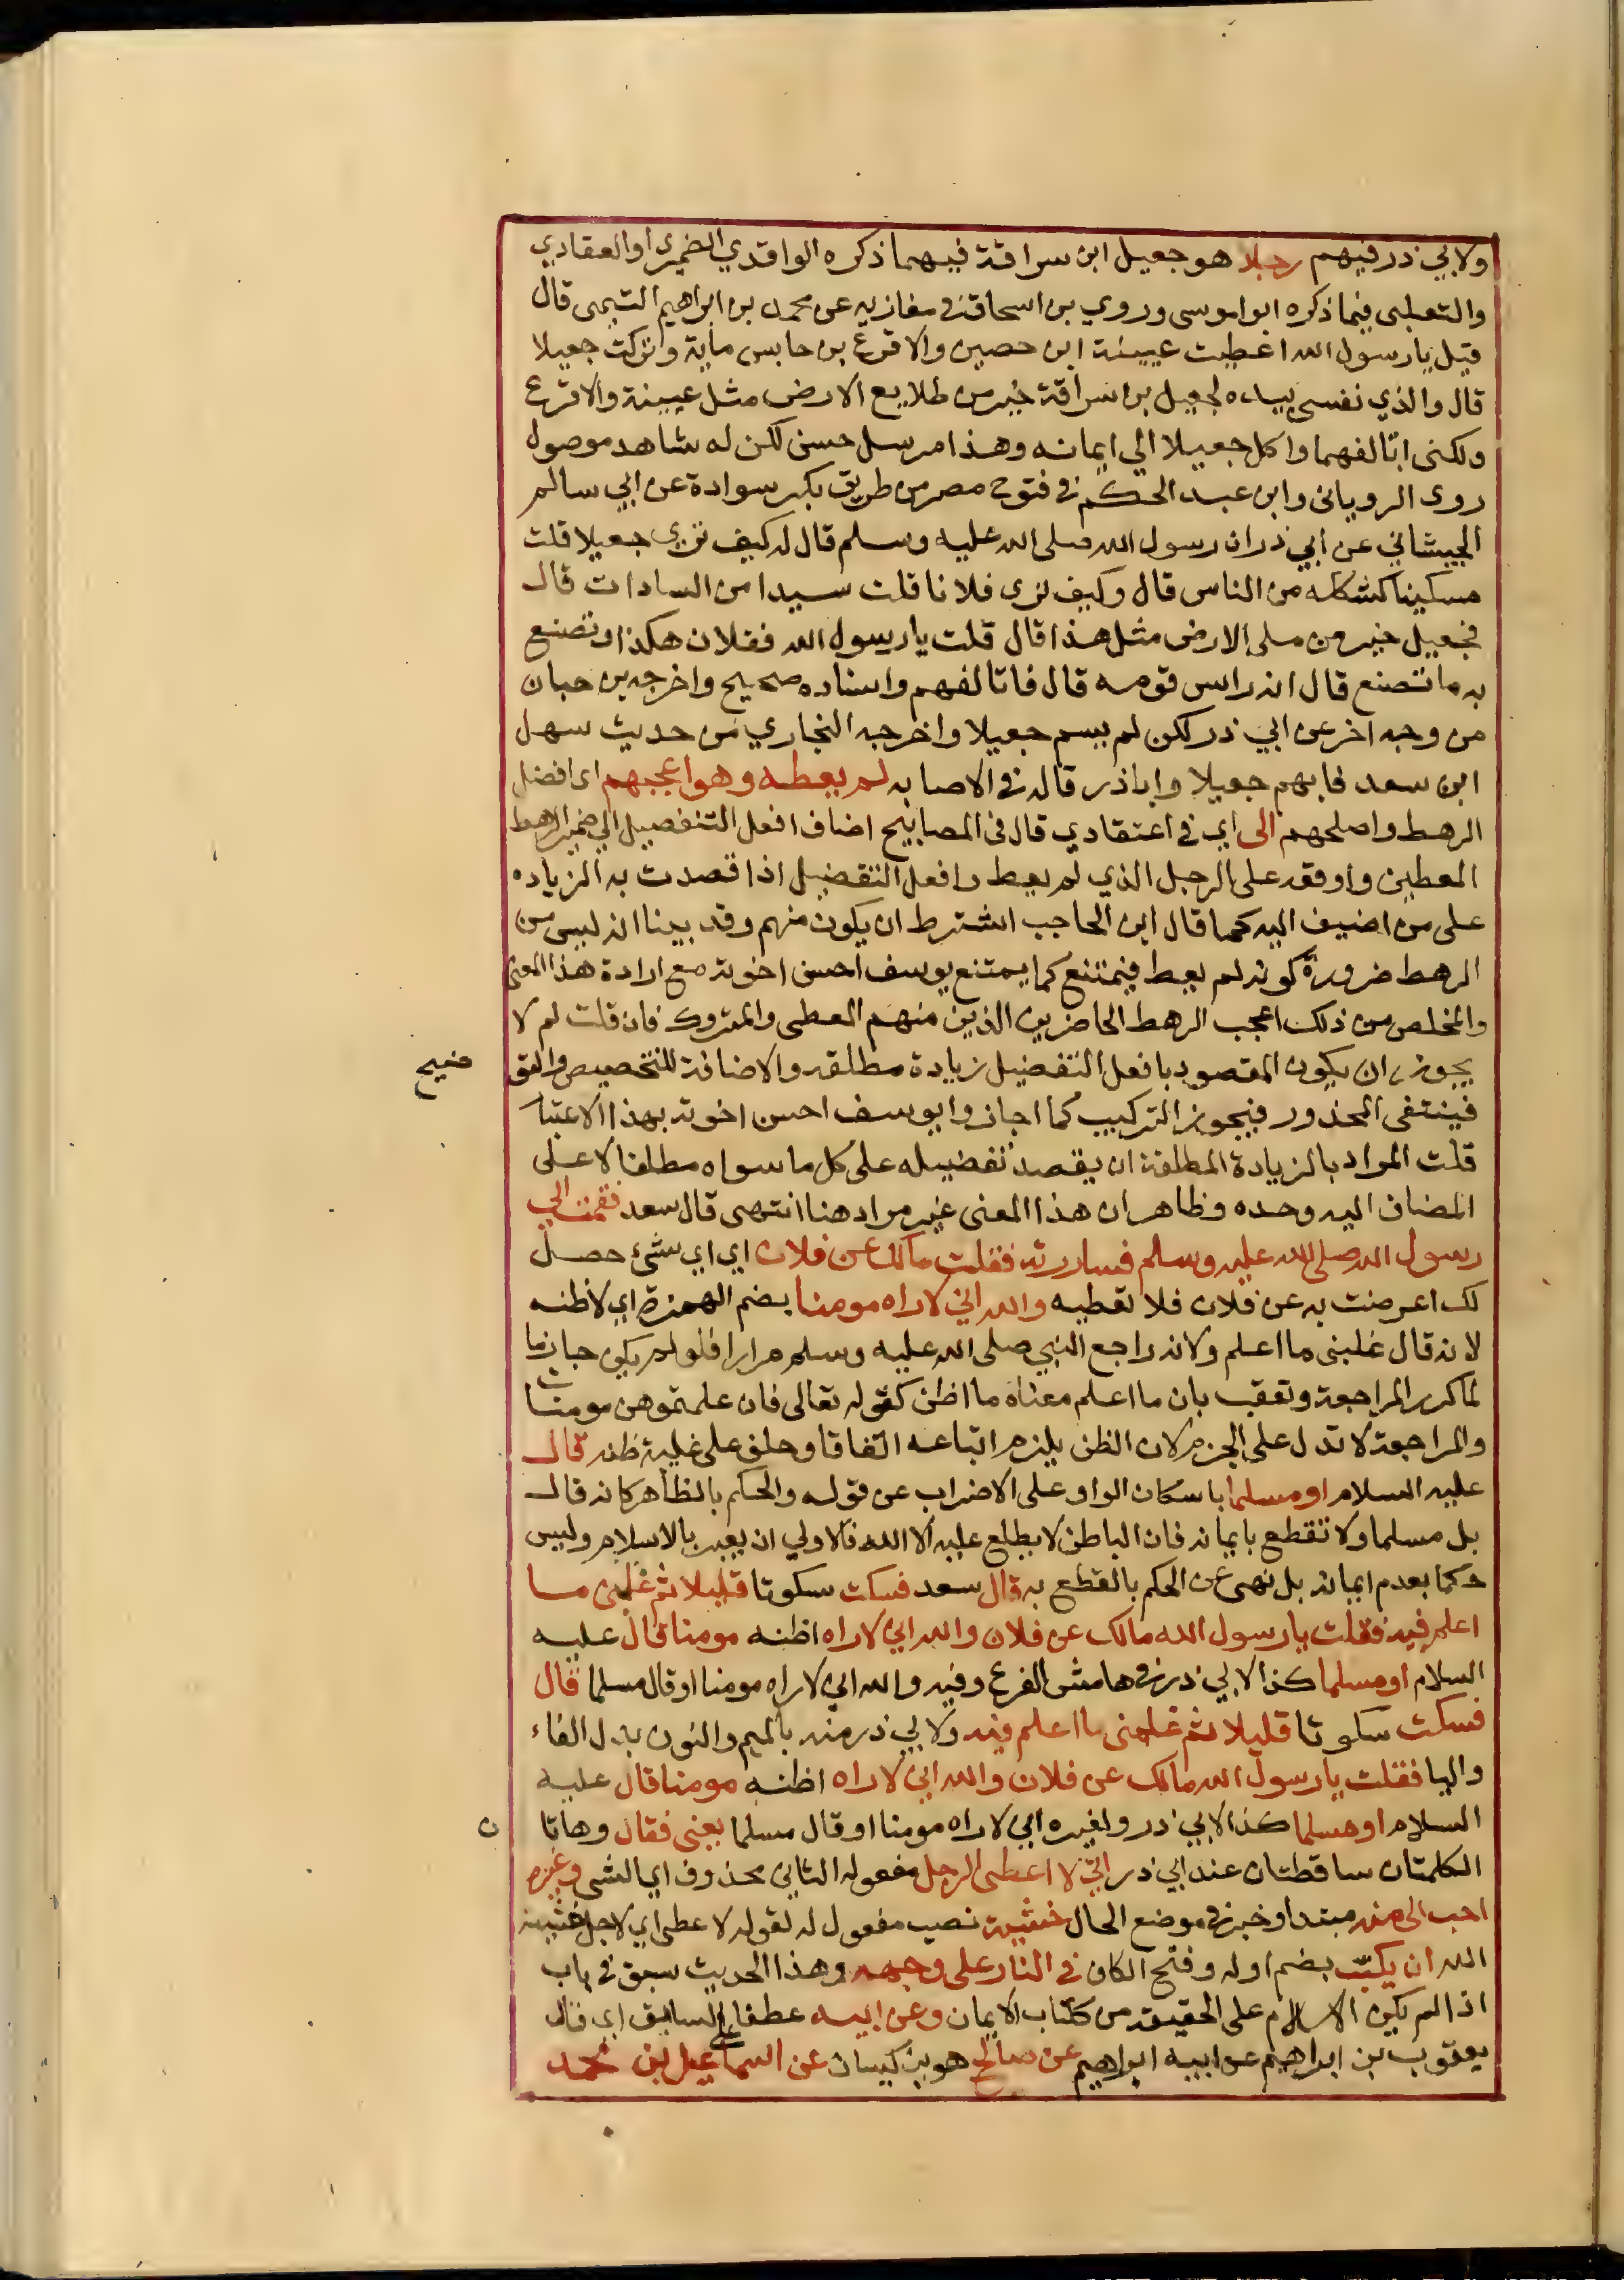 ولابي ذر فيهم رجلا هو جعيل ابن سراقة فيهما ذكره الواقدي الضميري او العقادي
والتعلبى فيما ذكره ابو اموسى وروي بن اسحاق في مغازيه عن محمد بن ابراهيم التيمى قال
قيل يا رسول الله اعطيت عيينة ابن حصين والاقرع بن حابس ماية وتركت جعيلا
قال والذي نفسي بيده لجعيل بن سراقة خير من طلايع الارض مثل عيينة والاقرع
ولكنى اتالفهما واكل جعيلا الي ايمانه وهذا مرسل حسن لكن له شاهد موصول
روى الروياني وابن عبد الحكم في فتوح مصر من طريق بكر سوادة عن ابي سالم
الجيشاني عن ابي ذر ان رسول الله صلى الله عليه وسلم قال له كيف ترى جعيلا قلت
مسكينا كشكله من الناس قال وكيف ترى فلانا قلت سيدا من السادات قال
فجعيل خير من ملى الارض مثل هذا قال قلت يا رسول الله ففلان هكذا وتصنع
به ما تصنع قال انه راس قومه قال فاتالفهم واسناده صحيح واخرجه بن حبان
من وجه اخر عن ابي ذر لكن لم يسم جعيلا واخرجه البخاري من حديث سهل
ابن سعد فابهم جعيلا واباذر قاله في الاصابه لم يعطه وهو اعجبهم اى افضل
الرهط واصلحهم الى اي في اعتقادي قال في المصابيح اضاف افعل التفضيل الي ضمير الرهط
المعطين واوقعه على الرجل الذي لم يعط وافعل التفضيل اذا قصدت به الزياده
على من اضيف اليه كما قال ابن الحاجب اشترط ان يكون منهم وقد بينا انه ليس من
الرهط ضرورة كونه لم يعط فيمتنع كما يمتنع يوسف احسن اخوته مع ارادة هذا المعنى
والمخلص من ذلك اعجب الرهط الحاضرين الذين منهم المعطى والمتروك فان قلت لم لا
يجوز ان يكون المقصود بافعل التفضيل زيادة مطلقه والاضافة للتخصيص والتو
ضيح
فينتفى المحذور فيجوز التركيب كما اجازوا يوسف احسن اخوته بهذا الاعتبا
قلت المراد بالزيادة المطلقة ان يقصد تفضيله على كل ما سواه مطلقا لا على
المضاف اليه وحده وظاهر ان هذا المعنى غير مراد هنا انتهى قال سعد فقمت الي
رسول الله صلى الله عليه وسلم فساررته فقلت مالك عن فلان اي اي شئ حصل
لك اعرضت به عن فلان فلا تعطيه والله اني لاراه مومنا بضم الهمزة اي لاظنه
لانه قال غلبنى ما اعلم ولانه راجع النبي صلى الله عليه وسلم مرارا فلو لم يكن جازما
لما كرر المراجعة وتعقب بان ما اعلم معناه ما اظن كقوله تعالى فان علمتموهن مومنات
والمراجعة لا تدل على الجزم لان الظن يلزم اتباعه اتفاقا وحلف على غلبة ظنه قال
عليه السلام او مسلما باسكان الواو على الاضراب عن قوله والحكم بالظاهر كانه قال
بل مسلما ولا تقطع بايمانه فان الباطن لا يطلع عليه الا الله فالاولي ان يعبر بالاسلام وليس
حكما بعدم ايمانه بل نهى عن الحكم بالقطع به قال سعد فسكت سكوتا قليلا ثم غلبنى ما
اعلم فيه فقلت يا رسول الله مالك عن فلان والله اني لاراه اظنه مومنا قال عليه
السلام او مسلما كذا لابي ذر في هامش الفرع وفيه والله اني لاراه مومنا او قال مسلما قال
فسكت سكوتا قليلا ثم غلبنى ما اعلم فيه ولابي ذر منه بالميم والنون بدل الفاء
واليا فقلت يا رسول الله مالك عن فلان والله اني لاراه اظنه مومنا قال عليه
السلام او مسلما كذا لابي ذر ولغيره اني لاراه مومنا او قال مسلما يعنى فقال وهاتا
ن
الكلمتان ساقطتان عند ابي ذر انى لا اعطى الرجل مفعوله الثاني محذوف اي الشى وغيره
احب الى منه مبتدا وخبر في موضع الحال خشية نصب مفعول له لقوله لا عطى اي لاجل خشية
الله ان يكبّ بضم اوله وفتح الكاف في النار على وجهه وهذا الحديث سبق في باب
اذا لم يكن الاسلام على الحقيقة من كتاب الايمان وعن ابيه عطفا على السابق اى قال
يعقوب بن ابراهيم عن ابيه ابراهيم عن صالح هو بن كيسان عن اسماعيل بن محمد